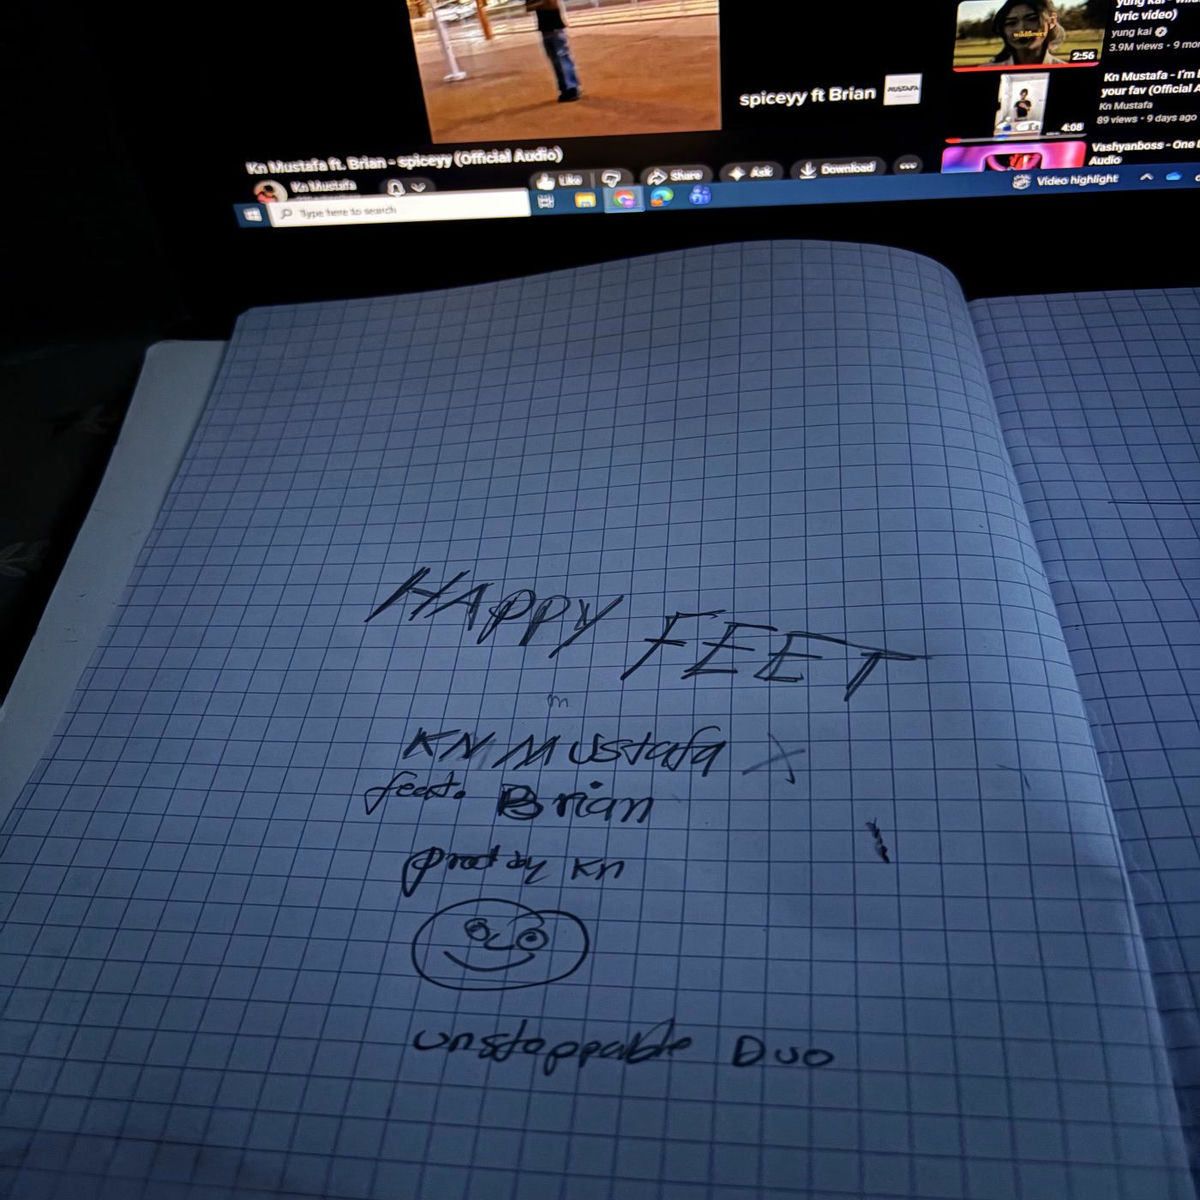 yung kai - wild
lyric video)
yung kai
3.9M views · 9 mo
wildflower
2:56
Kn Mustafa - I'm
your fav (Official A
Kn Mustafa
89 views · 9 days ago
4:08
Vashyanboss - One
Audio
spiceyy ft Brian
MUSTAFA
Kn Mustafa ft. Brian - spiceyy (Official Audio)
Kn Mustafa
Like
Share
Ask
Download
Type here to search
Video highlight
HAPPY FEET
m
KN Mustafa X
feat. Brian
prod by Kn
unstoppable Duo